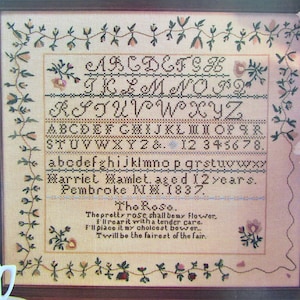 ABCDEFGH
IKLMNOPQ
RSTUVWXYZ
ABCDEFGHIJKLMNOPQR
STUVWXYZ&. 12345678.
abcdefghijklmnopqrstuvwxyz
Harriet Hamlet, aged 12 years.
Pembroke N.H. 1837.
The Rose.
The pretty rose shall be my flower,
I'll rear it with a tender care,
I'll place it my choicest bower,
T'will be the fairest of the fair.